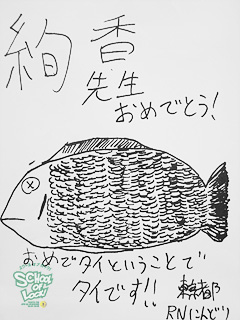 絢香
先生
おめでとう!
おめでタイということで
タイです!!
東京都
RNにんどり
SCHOOL OF LOCK!